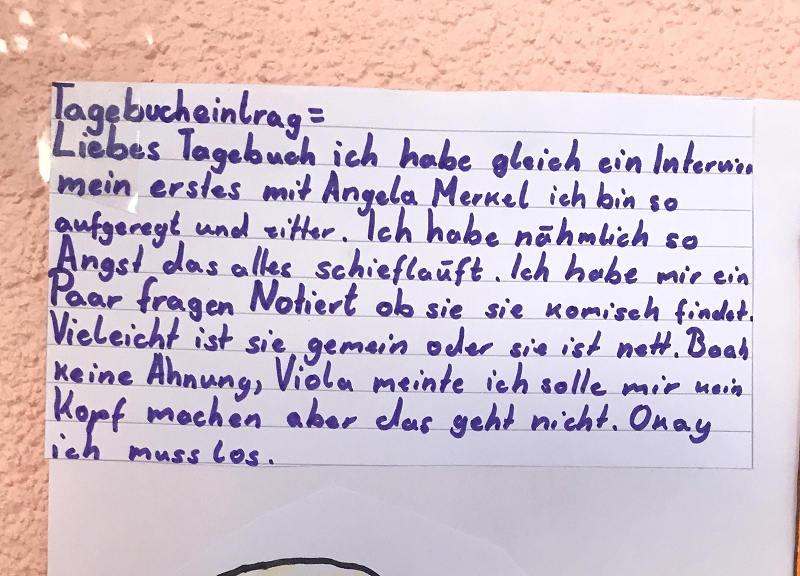 Tagebucheintrag=
Liebes Tagebuch ich habe gleich ein
mein erstes mit Angela Merkel ich bin so
aufgeregt und zitter. Ich habe nähmlich so
Angst das alles schiefläuft. Ich habe mir ein
Paar fragen Notiert ob sie sie komisch findet.
Vieleicht ist sie gemein oder sie ist nett. Boah
keine Ahnung, Viola meinte ich solle mir kein
Kopf machen aber das geht nicht. Okay
ich muss los.